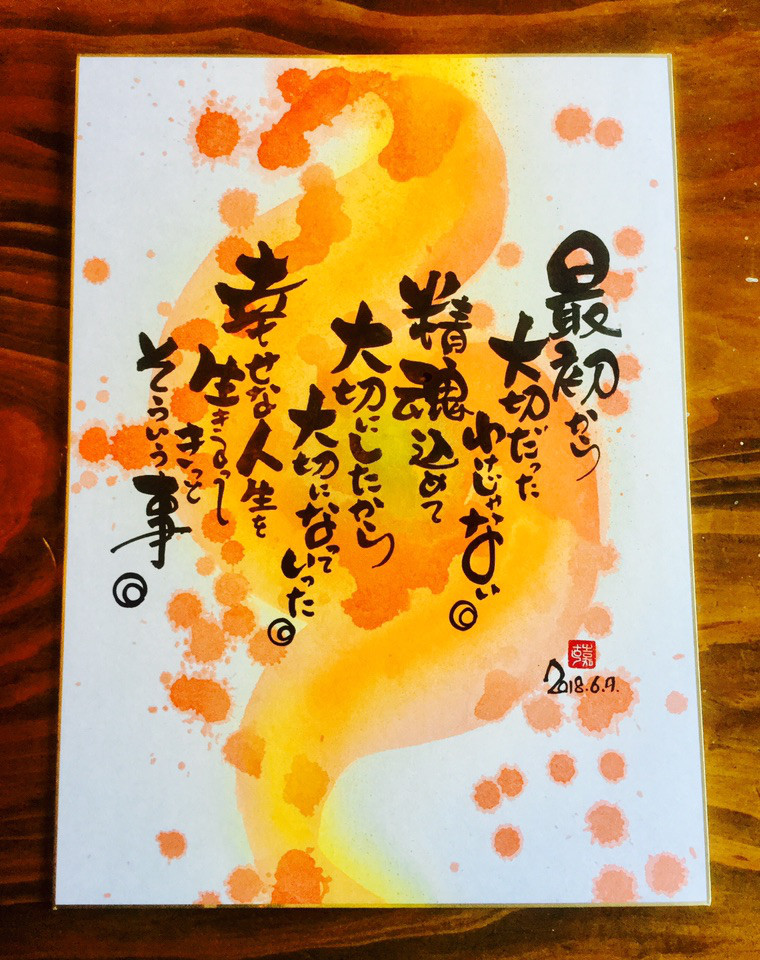 最初から
大切だった
わけじゃない。
精魂込めて
大切にしたから
大切になって
いった。
幸せな人生を
生きるって
きっと
そういう事。
2018.6.9.